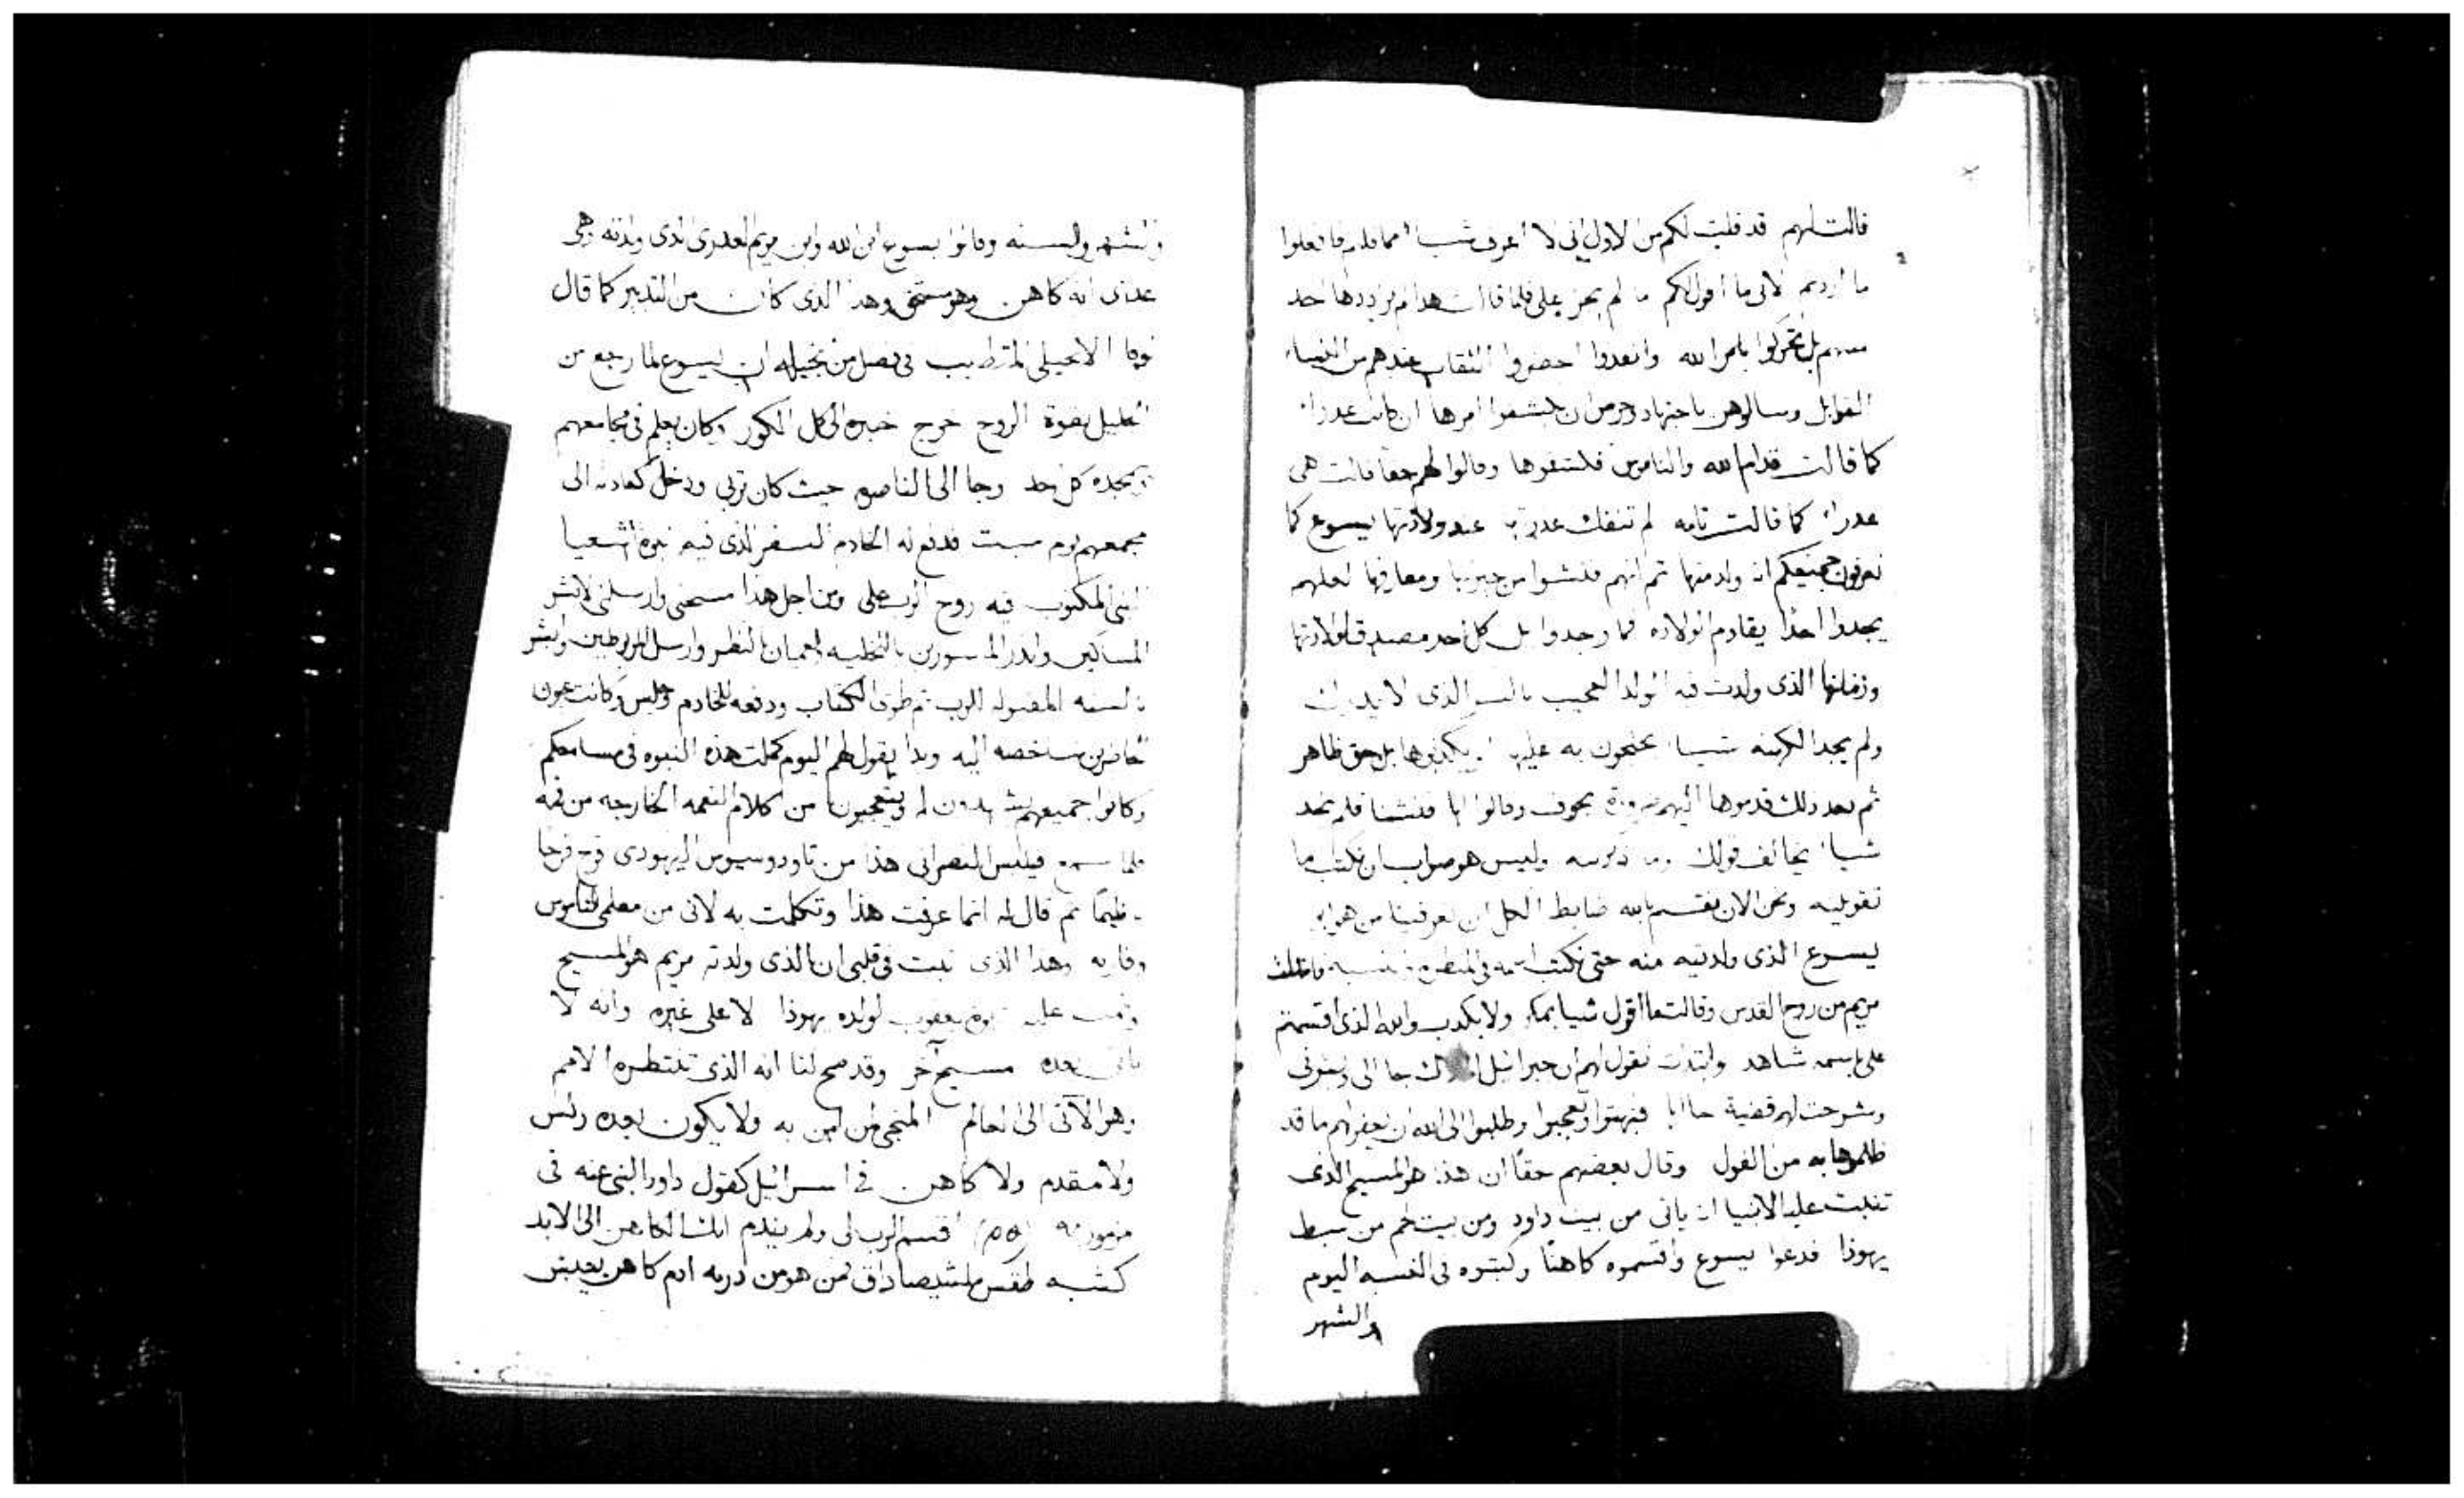 قالت لهم قد قلت لكم من الاول اني لا اعرف شيا مما قلتم فافعلوا
ما اردتم لاني ما اقول لكم ما لم يجز على فلما قالت هذا لم يرددها احد
منهم بل تحركوا بامر الله وانفدوا احضروا الثقات عندهم من النساء
القوابل وسالوهن باجتهاد وحرص ان يكشفوا امرها ان كانت عدراء
كما قالت قدام الله والناموس فكشفوها وقالوا لهم حقا قالت هي
عدراء كما قالت تامه لم تنفك عدرتها عند ولادتها يسوع كما
تعرفون جميعكم انه ولد منها ثم انهم فتشوا من جيرتها ومعارفها لعلهم
يجدوا احدا يقاوم الولاده فما وجدوا بل كل احد مصدق لولادتها
وزمانها الذى ولدت فيه الولد العجيب بالسر الذى لا
ولم يجد الكهنه شيا يحتجون به عليها يكذبوها بل حق ظاهر
ثم بعد ذلك قدموها اليهم بخوف وقالوا لها فتشنا فلم نجد
شيا يخالف قولك وما ذكرتيه وليس هو صواب ان نكتب ما
تقوليه ونحن الان نقسم بالله ضابط الكل ان تعرفينا من هو ابو
يسوع الذى ولدتيه منه حتى نكتب اسمه في فامتلت
مريم من روح القدس وقالت ما اقول شيا بمكر ولا بكدب والله الذى اقسمتم
على باسمه شاهد وابتدت تقول لهم ان جبرائيل جا الى وبشرنى
وشرحت لهم قضية حالها فبهتوا وتعجبوا وطلبوا الى الله ان يغفر لهم ما قد
ظلموها به من القول وقال بعضهم حقا ان هذا هو المسيح الذى
تنبت عليه الانبيا انه ياتى من بيت داود ومن بيت لحم من سبط
يهوذا فدعوا يسوع واقسموه كاهنا وكتبوه في اليوم
والشهر
والشهر والسنه وقالوا يسوع ابن الله وابن مريم العدرى الذى ولدته وهى
عدرى انه كاهن وهو مستحق وهذا الذى كان من التدبير كما قال
لوقا الانجيلى المتطبب في فصل من انجيله ان يسوع لما رجع من
الجليل بقوة الروح خرج خبره الى كل الكور وكان يعلم في مجامعهم
ويمجده كل احد وجا الى الناصره حيث كان تربى ودخل كعادته الى
مجمعهم يوم سبت فدفع له الخادم السفر الذى فيه نبوة اشعيا
النبى المكتوب فيه روح الرب على ومن اجل هذا مسحنى وارسلنى لابشر
المساكين وانذر الماسورين بالتخليه والعميان بالنظر وارسل المربوطين وابشر
بالسنه المقبوله للرب ثم طوى الكتاب ودفعه للخادم وجلس وكانت عيون
الحاضرين شاخصه اليه وبدا يقول لهم اليوم كملت هذه النبوه في مسامعكم
وكانوا جميعهم يشهدون له ويتعجبون من كلام النعمه الخارجه من فمه
فلما سمع فيلبس النصرانى هذا من تاودوسيوس اليهودى فرح فرحا
عظيما ثم قال له انما عرفت هذا وتكلمت به لانى من معلمى الناموس
وقاريه وهذا الذى ثبت في قلبى ان الذى ولدته مريم هو المسيح
وتمت عليه نبوة يعقوب لولده يهوذا لا على غيره وانه لا
ياتى بعده مسيح آخر وقد صح لنا انه الذى تنتظره الامم
وهو الآتى الى العالم المنجى من امن به ولا يكون بعده رئس
ولا متقدم ولا كاهن في اسرائيل كقول داود النبى عنه في
مزمور اقسم الرب لى ولم يندم انك الكاهن الى الابد
كشبه طقس ملشيصاداق فمن هو من ذريه ادم كاهن يعيش